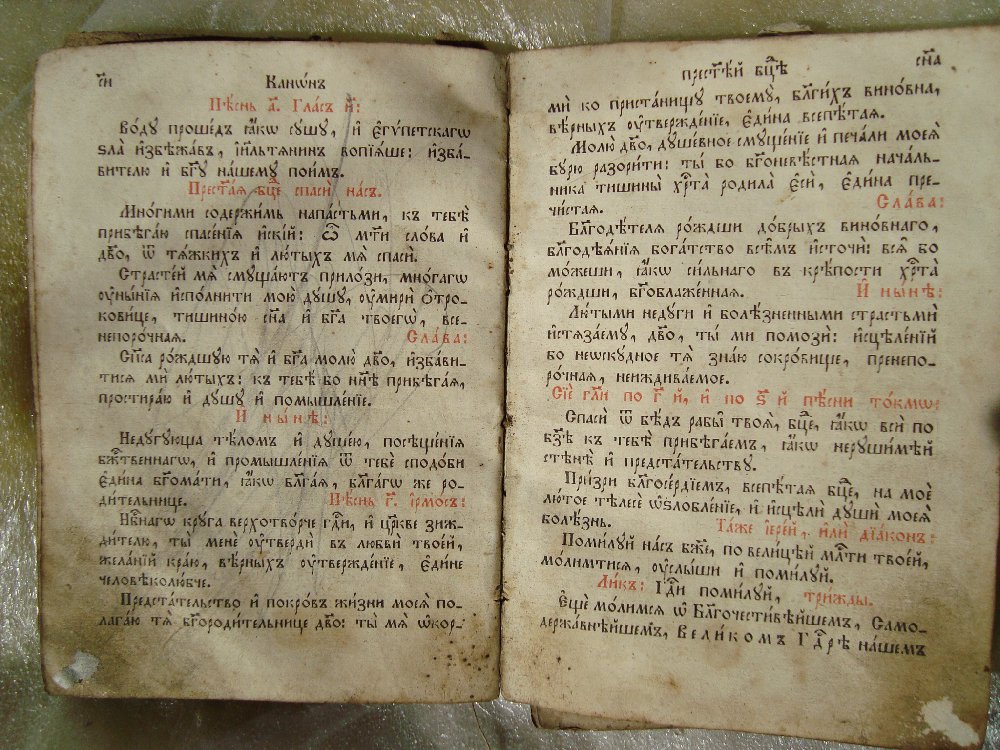 с҃н
Канѡ́нъ
Пѣ́снь а҃. Гла́съ и҃:
Во́ду проше́дъ ꙗ҆́кѡ сꙋ́шꙋ, и҆ є҆гѵ́петскагѡ
ѕла̀ и҆збѣжа́въ, і҆и҃льтѧнинъ вопїѧ́ше: и҆зба́-
вителю и҆ бг҃ꙋ на́шемꙋ пои́мъ.
Прест҃а́ѧ бцⷣе спасѝ на́съ.
Мно́гими содержи́мь напа́стьми, къ тебѣ̀
прибѣга́ю спасе́нїѧ и҆скі́й: ѽ мт҃и сло́ва и҆
дв҃о, ѿ тѧ́жкихъ и҆ лю́тыхъ мѧ̀ спасѝ.
Страсте́й мѧ̀ смꙋща́ютъ прило́зи, мно́гагѡ
ᲂу҆ны́нїѧ и҆спо́лнити мою̀ дꙋ́шꙋ, ᲂу҆мирѝ ѻ҆тро-
кови́це, тишино́ю сн҃а и҆ бг҃а твоегѡ̀, все-
непоро́чнаѧ.
Сла́ва:
Сп҃са ро́ждшꙋю тѧ̀ и҆ бг҃а молю̀ дв҃о, и҆зба́ви-
тисѧ мѝ лю́тыхъ: къ тебѣ́ бо нн҃ѣ прибѣга́ѧ,
простира́ю и҆ дꙋ́шꙋ и҆ помышле́нїе.
И҆ ны́нѣ:
Недꙋ́гꙋюща тѣ́ломъ и҆ дꙋше́ю, посѣще́нїѧ
бжⷭ҇твеннагѡ, и҆ промышле́нїѧ ѿ тебє̀ сподо́би
є҆ди́на бг҃ома́ти, ꙗ҆́кѡ блг҃а́ѧ, блг҃а́гѡ же ро-
ди́тельнице.
Пѣ́снь г҃. І҆рмо́съ:
Нбⷭ҇нагѡ крꙋ́га верхотво́рче гдⷭ҇и, и҆ цр҃кве зиж-
ди́телю, ты̀ менѐ ᲂу҆твердѝ въ любвѝ твое́й,
жела́нїй кра́ю, вѣ́рныхъ ᲂу҆твержде́нїе, є҆ди́не
человѣколю́бче.
Предста́тельство и҆ покро́въ жи́зни моеѧ̀ по-
лага́ю тѧ̀ бг҃ороди́тельнице дв҃о: ты̀ мѧ̀ ѡ҆кор-
прест҃ѣ́й бцⷣѣ
сн҃а
мѝ ко приста́нищꙋ твоемꙋ̀, блг҃и́хъ вино́вна,
вѣ́рныхъ ᲂу҆твержде́нїе, є҆ди́на всепѣ́таѧ.
Молю̀ дв҃о, дꙋше́вное смꙋще́нїе и҆ печа́ли моеѧ̀
бꙋ́рю разори́ти: ты́ бо бг҃оневѣ́стнаѧ нача́ль-
ника тишины̀ хрⷭ҇та̀ родила̀ є҆сѝ, є҆ди́на пре-
чи́стаѧ.
Сла́ва:
Благодѣ́телѧ ро́ждши до́брыхъ вино́внаго,
блгⷣодѣѧ́нїѧ бога́тство всѣ̑мъ и҆сточѝ: всѧ̑ бо
мо́жеши, ꙗ҆́кѡ си́льнаго въ крѣ́пости хрⷭ҇та̀
ро́ждши, бг҃облаже́ннаѧ.
И҆ ны́нѣ:
Лю́тыми недꙋ́ги и҆ болѣ́зненными страстьмѝ
и҆стѧза́емꙋ, дв҃о, ты̀ мѝ помозѝ: и҆сцѣле́нїй
бо неѡскꙋ́дное тѧ̀ зна́ю сокро́вище, пренепо-
ро́чнаѧ, неиждива́емое.
Сїѐ гл҃и по г҃ й, и҆ по ѕ҃ й пѣ́сни то́кмѡ:
Спасѝ ѿ бѣ́дъ рабы̑ твоѧ̑, бцⷣе, ꙗ҆́кѡ всѝ по
бз҃ѣ къ тебѣ̀ прибѣга́емъ, ꙗ҆́кѡ нерꙋши́мѣй
стѣнѣ̀ и҆ предста́тельствꙋ.
При́зри блг҃осе́рдїемъ, всепѣ́таѧ бцⷣе, на моѐ
лю́тое тѣлесѐ ѡ҆ѕлобле́нїе, и҆ и҆сцѣлѝ дꙋшѝ моеѧ̀
болѣ́знь.
Та́же і҆ере́й, и҆лѝ дїа́конъ:
Поми́лꙋй на́съ бж҃е, по вели́цѣй млⷭ҇ти твое́й,
мо́лимтисѧ, ᲂу҆слы́ши и҆ поми́лꙋй.
Ли́къ: Гдⷭ҇и поми́лꙋй, три́жды.
Є҆щѐ мо́лимсѧ ѡ҆ Благочести́вѣйшемъ, Само-
держа́внѣйшемъ, Вели́комъ Гдⷭ҇рѣ на́шемъ